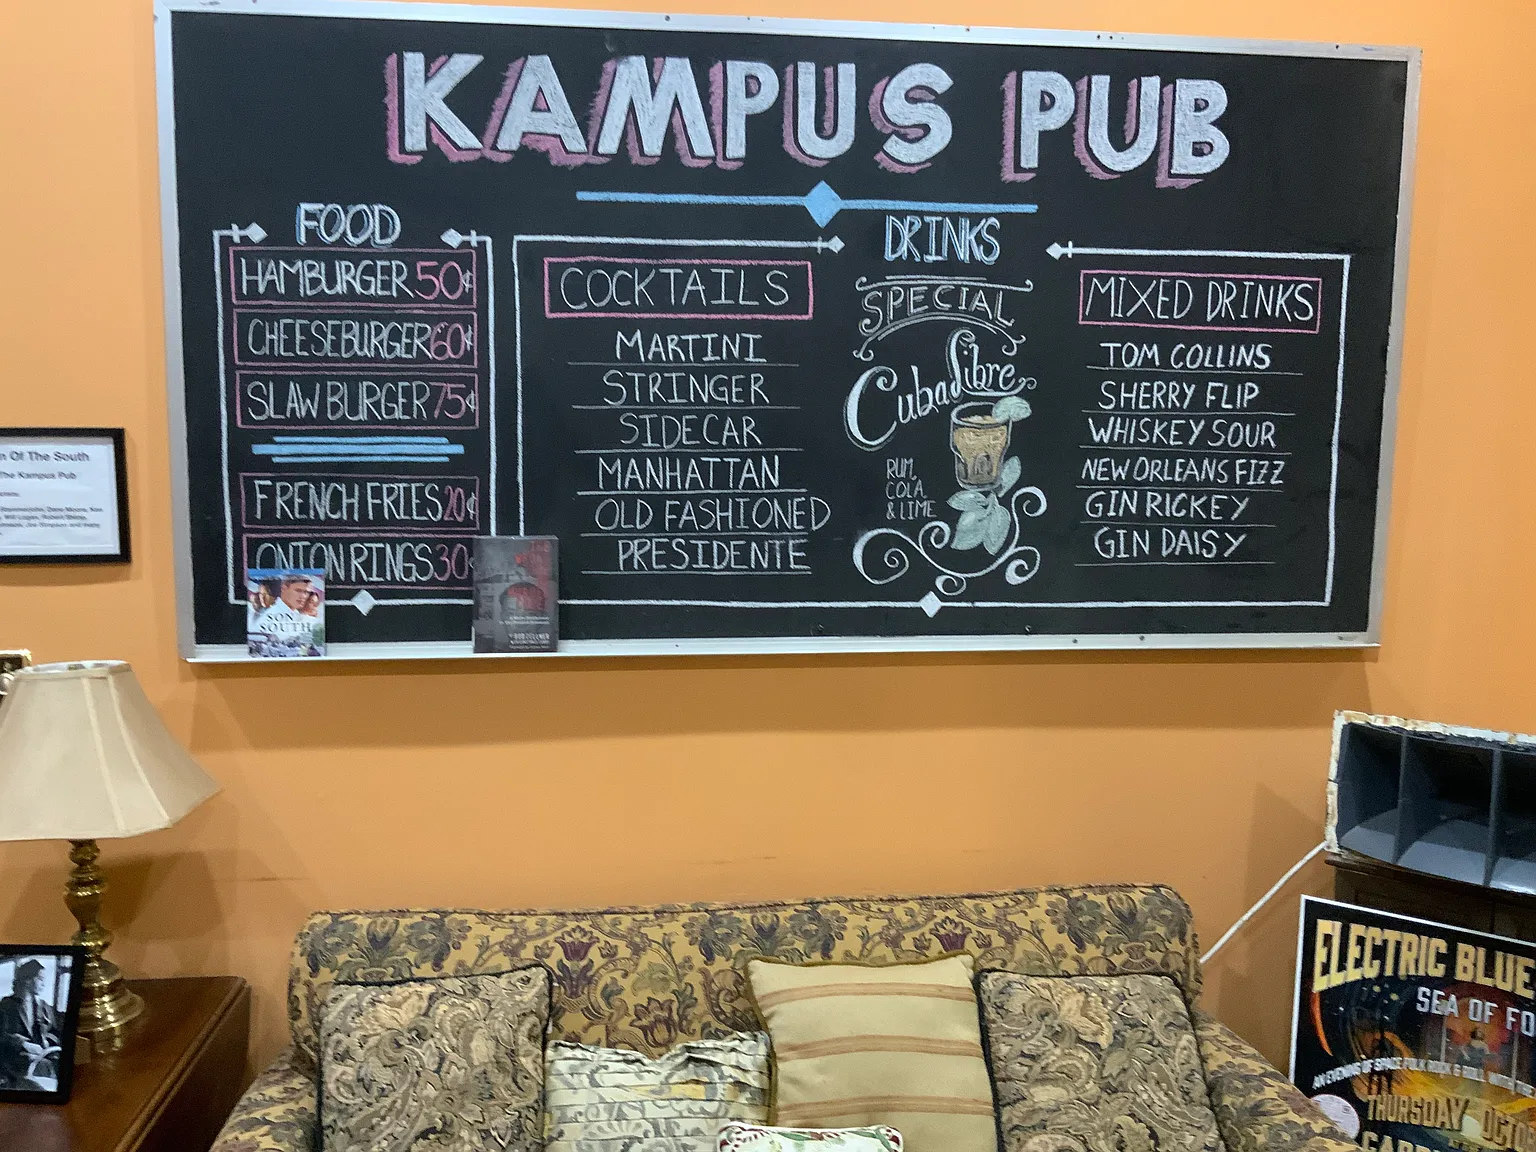 KAMPUS PUB
FOOD
HAMBURGER 50¢
CHEESEBURGER 60¢
SLAW BURGER 75¢
FRENCH FRIES 20¢
ONION RINGS 30¢
DRINKS
COCKTAILS
MARTINI
STRINGER
SIDECAR
MANHATTAN
OLD FASHIONED
PRESIDENTE
SPECIAL
Cuba Libre
RUM,
COLA,
& LIME
MIXED DRINKS
TOM COLLINS
SHERRY FLIP
WHISKEY SOUR
NEW ORLEANS FIZZ
GIN RICKEY
GIN DAISY
n Of The South
The Kampus Pub
SON
SOUTH
BOB ZELLNER
ELECTRIC BLUE
SEA OF FO
AN EVENING OF SPACE FOLK ROCK & ROLL WITH THE
THURSDAY OCTO